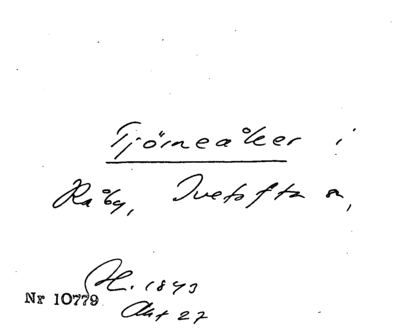 Tjörneåker i
Råby, Ivetofta sn,
H. 1843
Nr 10779
Akt 27